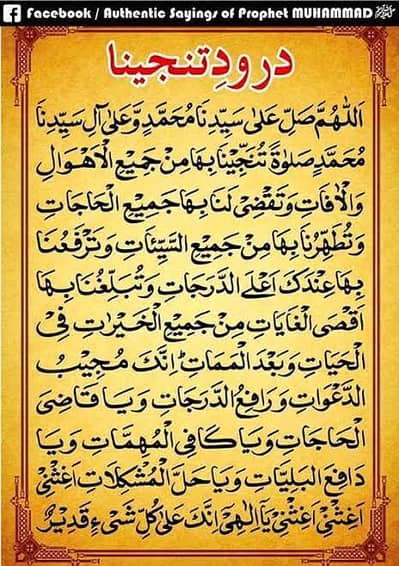 Facebook / Authentic Sayings of Prophet MUHAMMAD ﷺ
درودِتنجینا
اَللّٰهُمَّ صَلِّ عَلٰى سَيِّدِنَا مُحَمَّدٍ وَّعَلٰى اٰلِ سَيِّدِنَا
مُحَمَّدٍ صَلٰوةً تُنَجِّيْنَا بِهَا مِنْ جَمِيْعِ الْاَهْوَالِ
وَالْاٰفَاتِ وَتَقْضِىْ لَنَا بِهَا جَمِيْعَ الْحَاجَاتِ
وَتُطَهِّرُنَا بِهَا مِنْ جَمِيْعِ السَّيِّئٰاتِ وَتَرْفَعُنَا
بِهَا عِنْدَكَ اَعْلَى الدَّرَجَاتِ وَتُبَلِّغُنَا بِهَا
اَقْصَى الْغَايَاتِ مِنْ جَمِيْعِ الْخَيْرَاتِ فِى
الْحَيَاتِ وَبَعْدَ الْمَمَاتِ ؕ اِنَّكَ مُجِيْبُ
الدَّعْوَاتِ وَرَافِعُ الدَّرَجَاتِ وَيَا قَاضِىَ
الْحَاجَاتِ وَيَا كَافِى الْمُهِمَّاتِ وَيَا
دَافِعَ الْبَلِيَّاتِ وَيَا حَلَّ الْمُشْكِلَاتِ اَغِثْنِىْ
اَغِثْنِىْ اَغِثْنِىْ يَآ اِلٰهِىْ اِنَّكَ عَلٰى كُلِّ شَىْءٍ قَدِيْرٌ